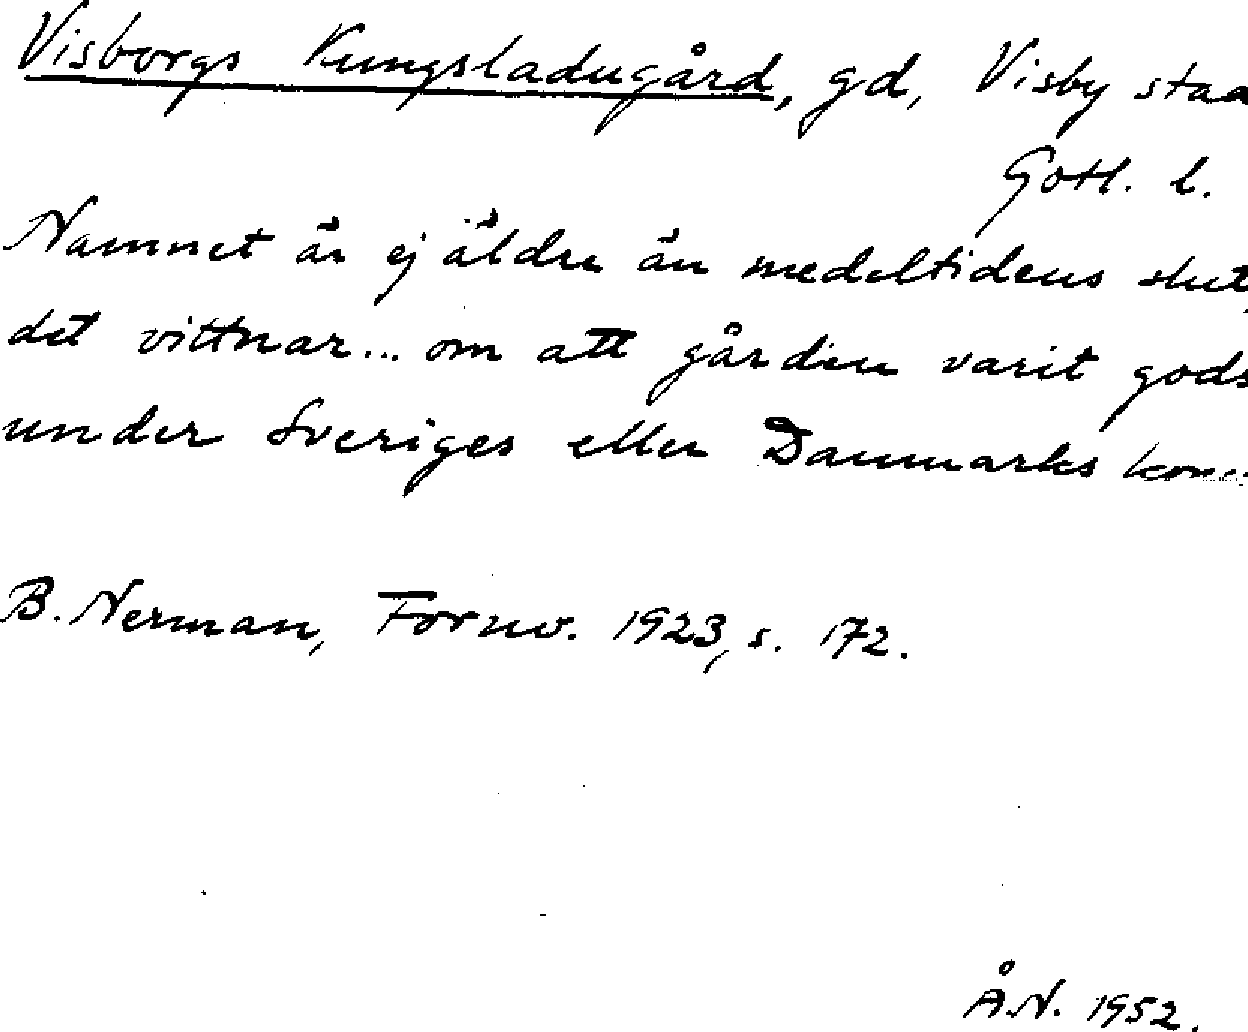 Visborgs Kungsladugård, gd, Visby staa
Gotl. l.
Namnet är ej äldre än medeltidens slut,
det vittnar... om att gården varit gods
under Sveriges eller Danmarks
B. Nerman, Fornv. 1923, s. 172.
Å.N. 1952.